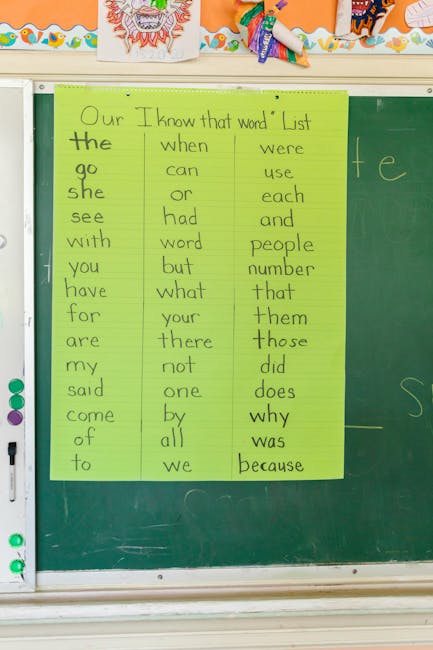 Our I know that word" List
the when were
go can use
she or each
see had and
with word people
you but number
have what that
for your them
are there those
my not did
said one does
come by why
of all was
to we because
te